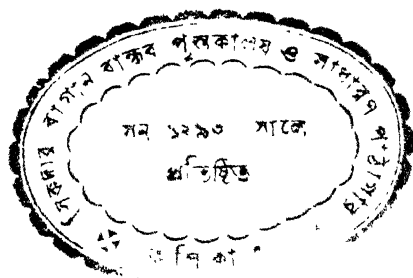 সিকদার বাগান বান্ধব পুস্তকালয় ও সাধারণ পাঠাগার
সন ১২৯৩ সালে
প্রতিষ্ঠিত